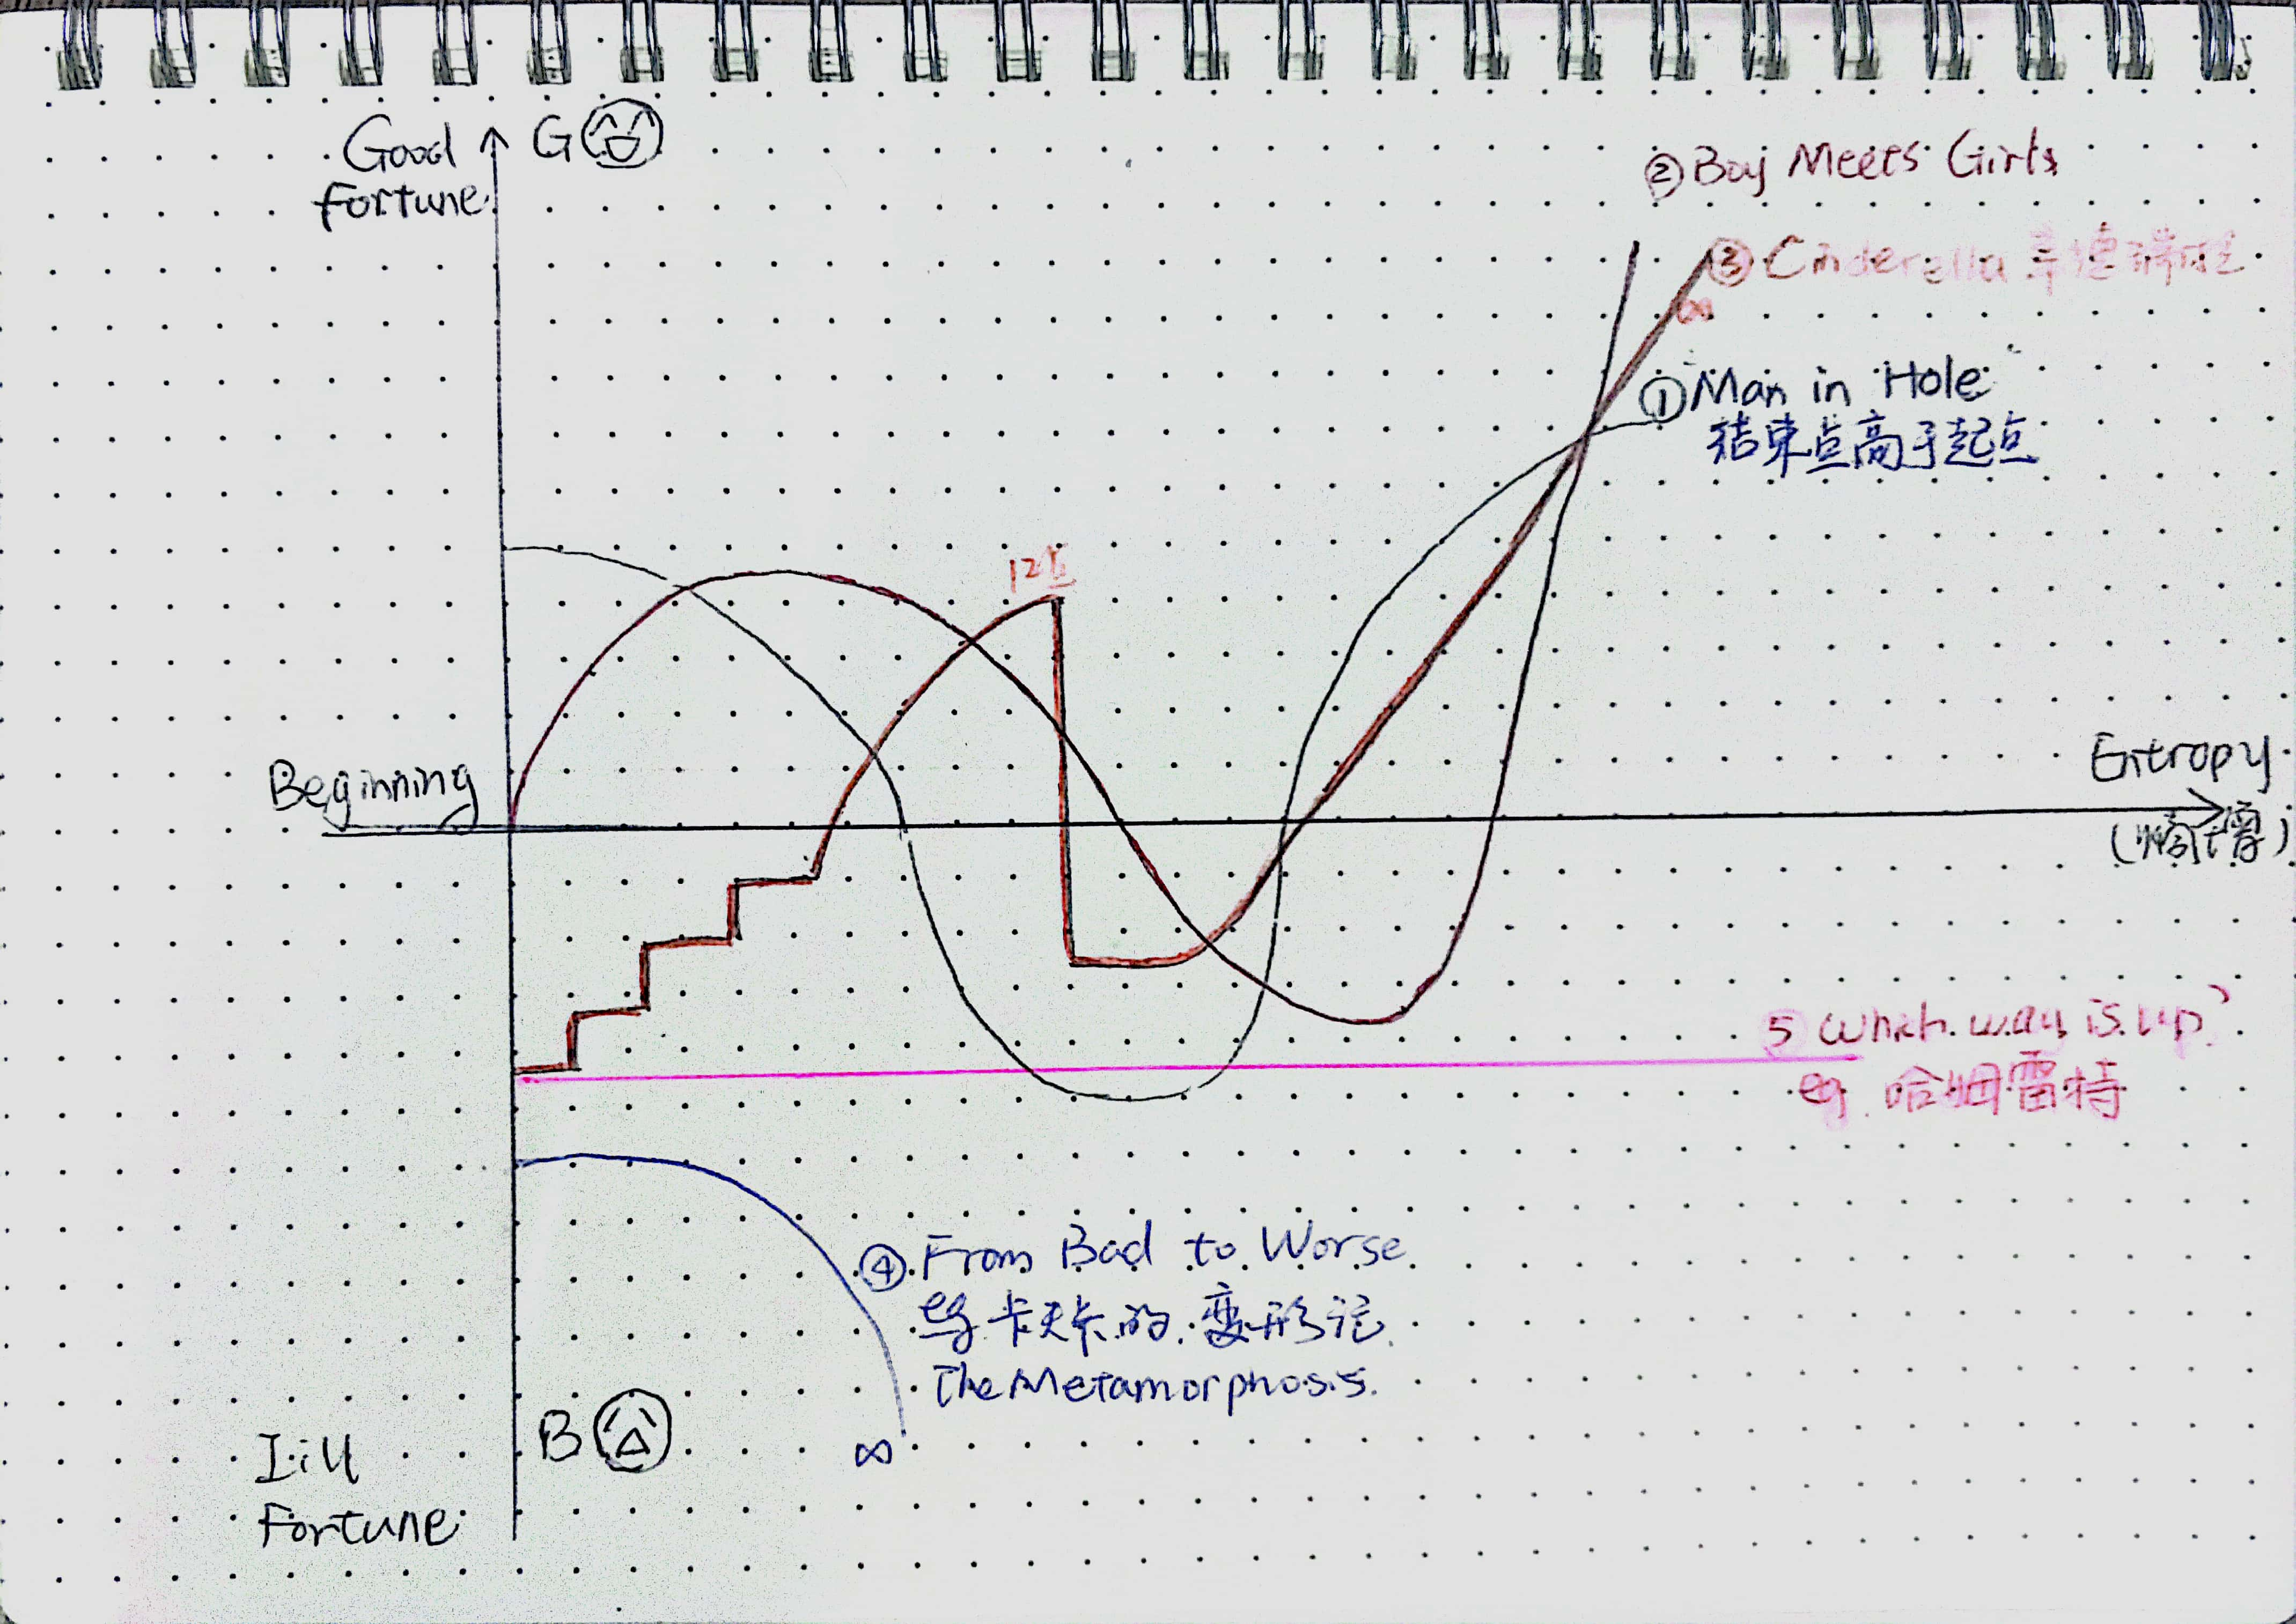 Good
Fortune
G
② Boy Meets Girls
③ Cinderella 辛德瑞拉
∞
① Man in Hole
结束点高于起点
12点
Beginning
Entropy
5 Which way is up?
eg. 哈姆雷特
④ From Bad to Worse
eg 卡夫卡的变形记
The Metamorphosis.
∞
B
I:ill
Fortune